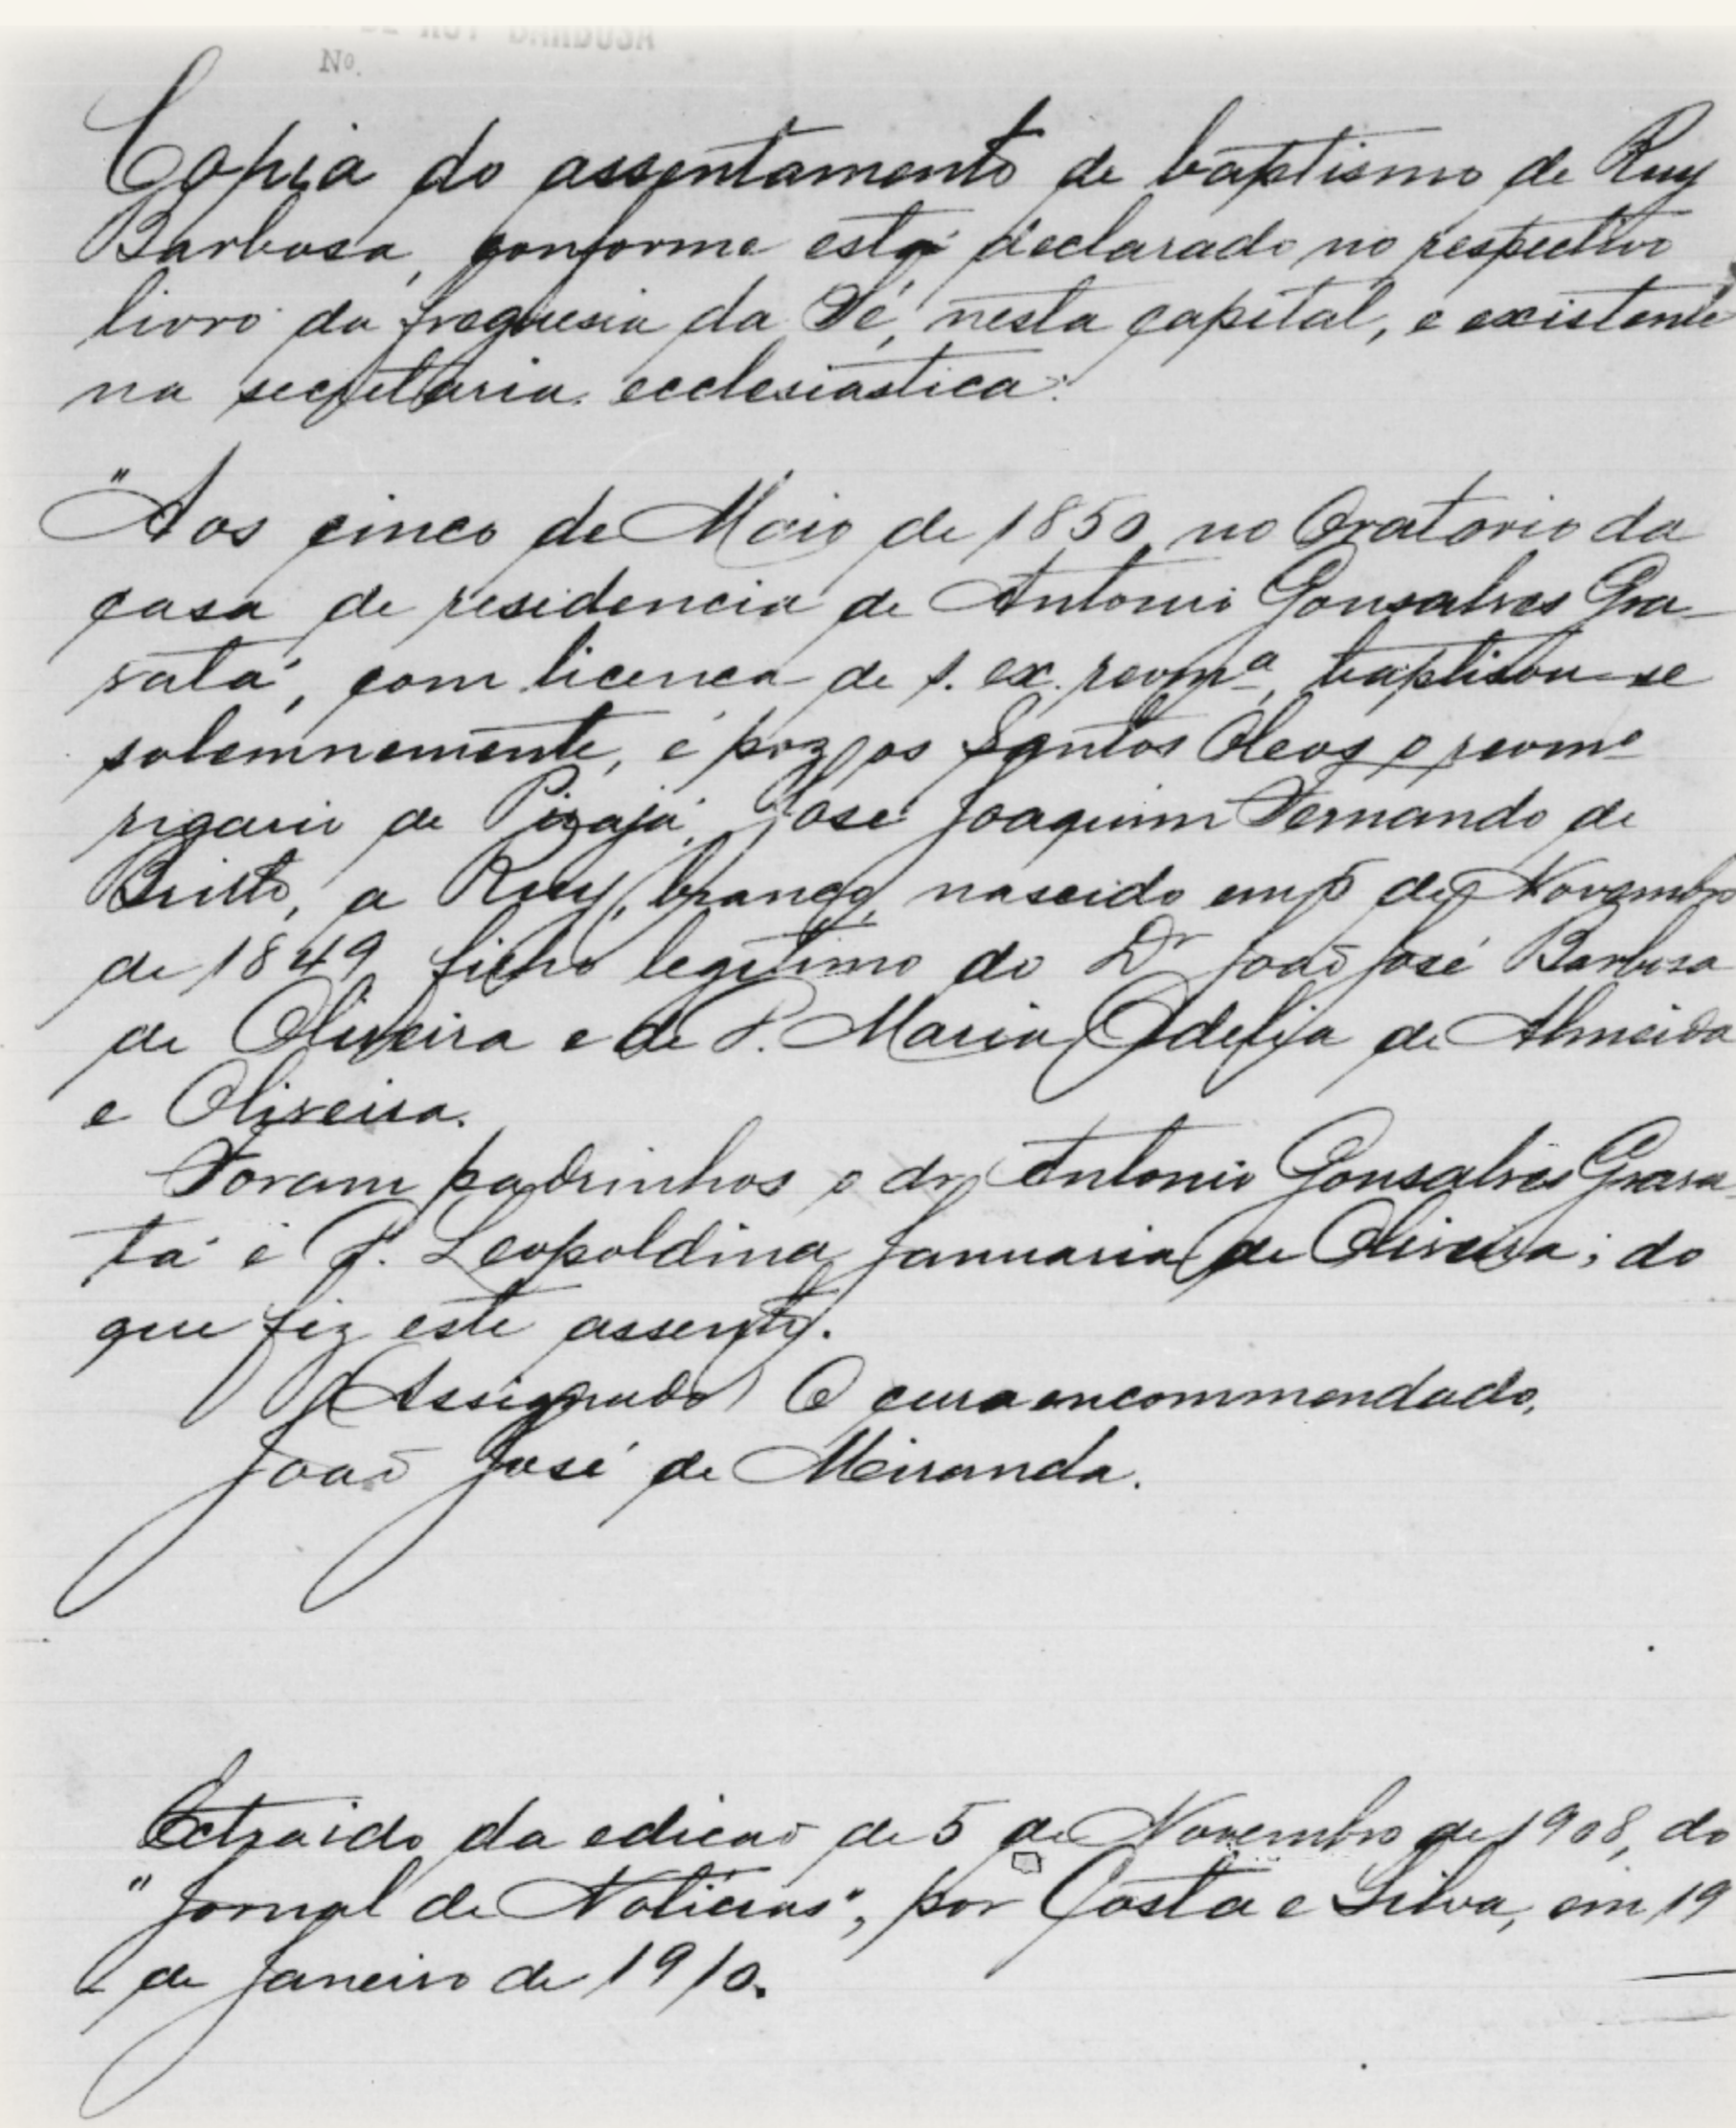 DE RUY BARBOSA
Nº.
Copia do assentamento de baptismo de Ruy
Barbosa, conforme está declarado no respectivo
livro da freguesia da Sé, nesta capital, e existente
na secretaria ecclesiastica:
"Aos cinco de Maio de 1850, no Oratorio da
casa de residencia de Antonio Gonsalves Gra-
vatá, com licenca de s. ex. revmª, baptisou-se
solemnemente, e poz os Santos Oleos o revmº
vigario de Pirajá, José Joaquim Fernando de
Britto, a Ruy, branco, nascido em 5 de Novembro
de 1849, filho legitimo do Dr João José Barbosa
de Oliveira e de D. Maria Adelia de Almeida
e Oliveira.
Foram padrinhos o dr. Antonio Gonsalves Grava-
tá e D. Leopoldina Januaria de Oliveira; do
que fiz este assento.
(Assignado) O cura encommendado,
João José de Miranda.
Extraido da edicão de 5 de Novembro de 1908, do
"Jornal de Noticias", por Costa e Silva, em 19
de Janeiro de 1910.